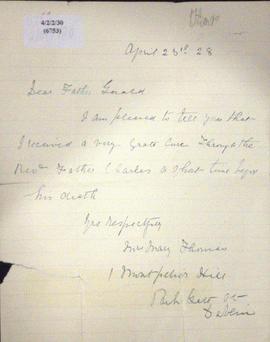 4/2/2/30
(6753)
Thomas
April 23rd 28
Dear Father Gerald
I am pleased to tell you that
I received a very great cure through the
Revd Father Charles a short time before
his death
Yrs respectfully
Mrs Mary Thomas
1 Montpelier Hill
Park Gate St
Dublin